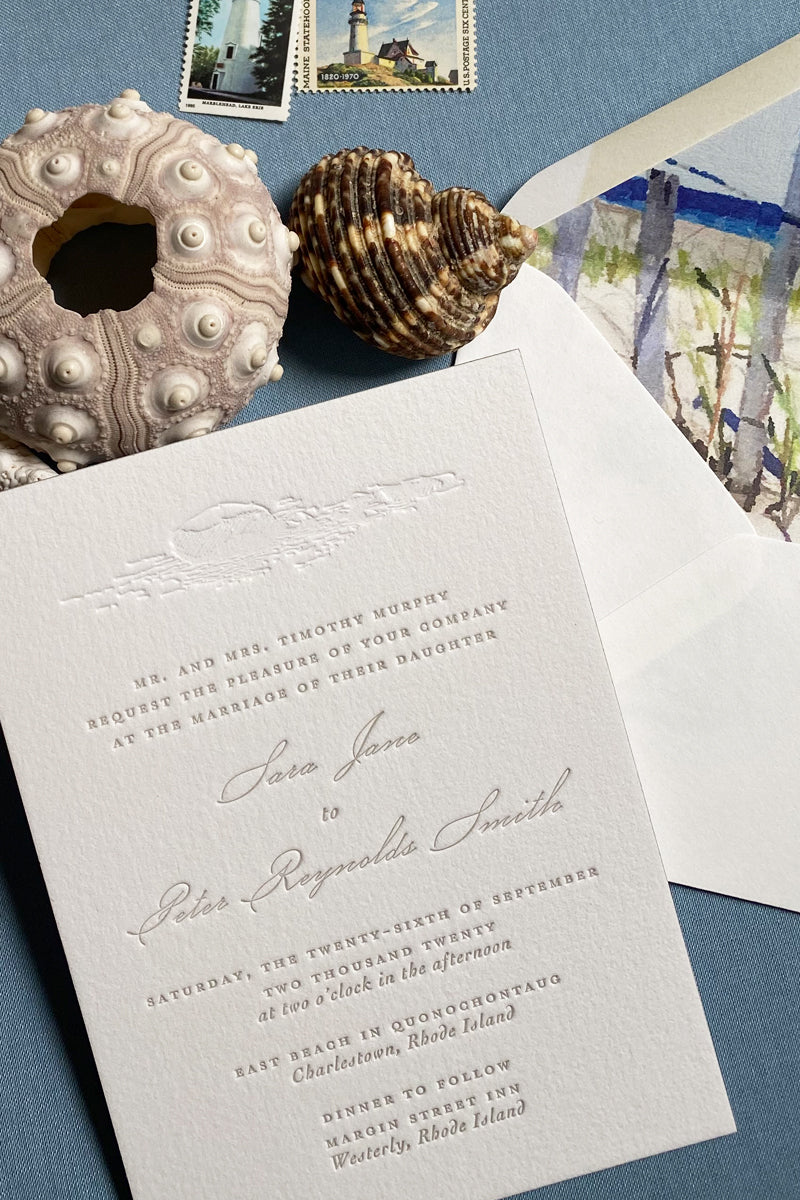 MARBLEHEAD, LAKE ERIE
1995
MAINE STATEHOOD
1820-1970
U.S. POSTAGE SIX CENTS
MR. AND MRS. TIMOTHY MURPHY
REQUEST THE PLEASURE OF YOUR COMPANY
AT THE MARRIAGE OF THEIR DAUGHTER
Sara Jane
to
Peter Reynolds Smith
SATURDAY, THE TWENTY-SIXTH OF SEPTEMBER
TWO THOUSAND TWENTY
at two o'clock in the afternoon
EAST BEACH IN QUONOCHONTAUG
Charlestown, Rhode Island
DINNER TO FOLLOW
MARGIN STREET INN
Westerly, Rhode Island